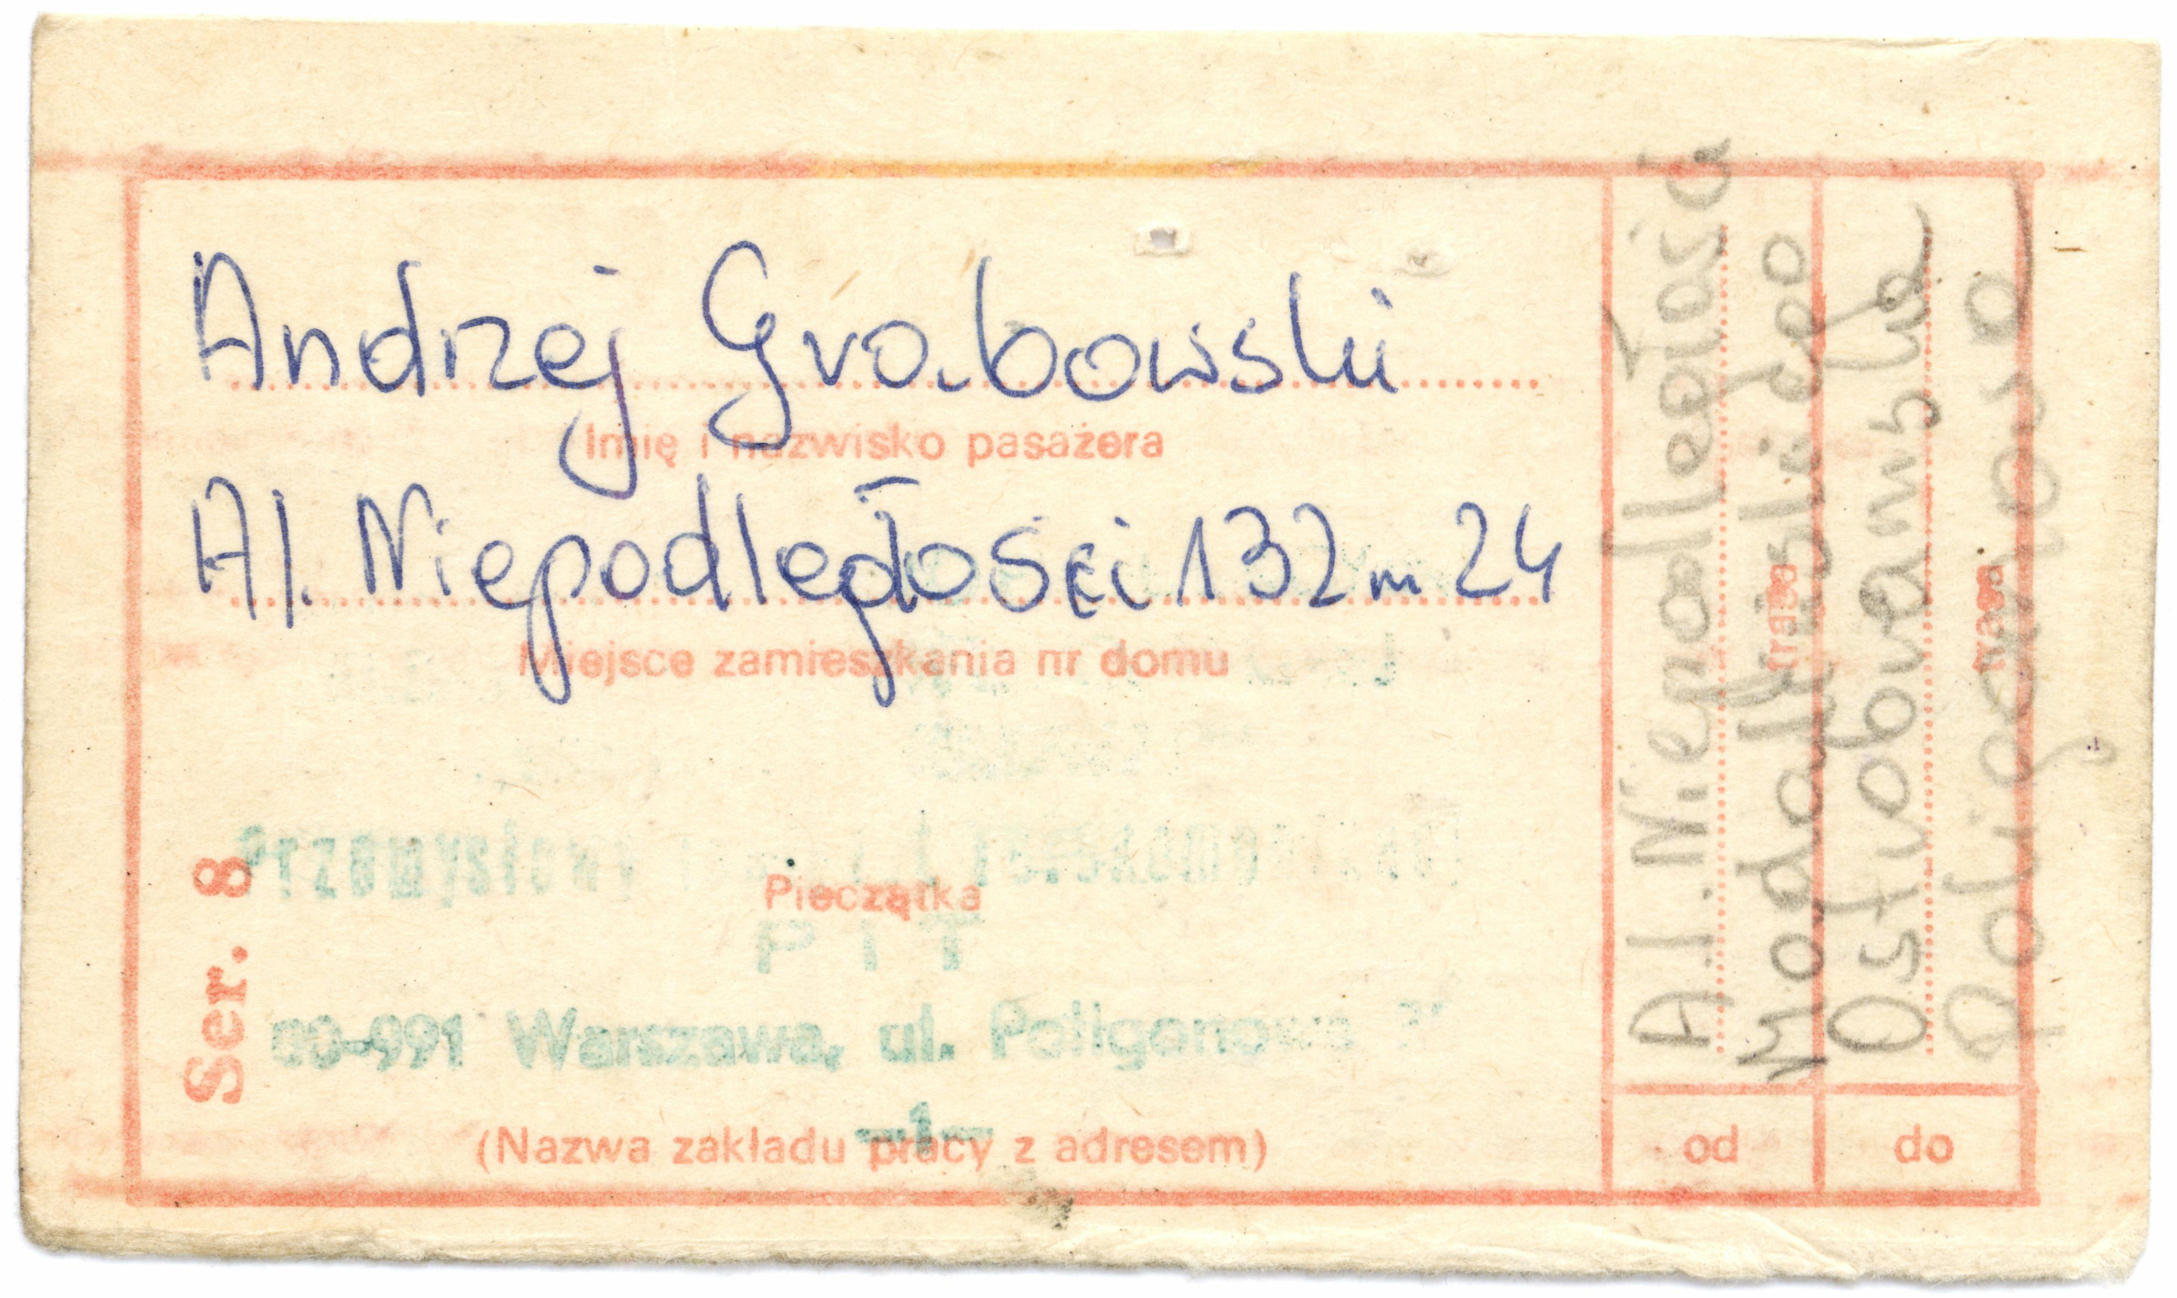 Andrzej Grabowski
Imię i nazwisko pasażera
Al. Niepodległości 132 m 24
Miejsce zamieszkania nr domu
Przemysłowy Telekomunikacji
Pieczątka
PIT
00-991 Warszawa, ul. Poligonowa
-1-
(Nazwa zakładu pracy z adresem)
Ser. 8
Al. Niepodległości
trasa
od
Ostrobramska
Poligonowa
trasa
do